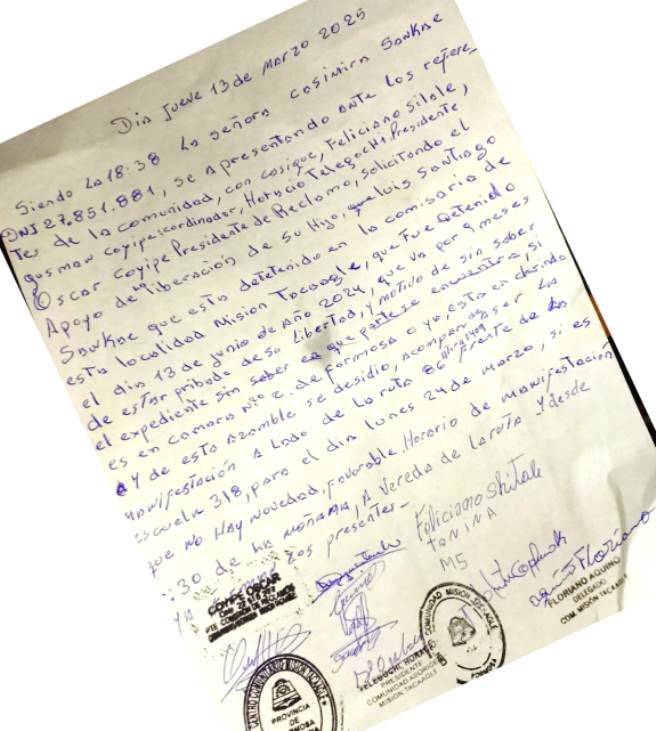 Dia Jueve 13 de Marzo 2025
Siendo La 18:38 La señora casimira Sankae
DNI 27.851.881, se apresentando ante Los refere_
Tes de la comunidad, con casique, Feliciano Silale,
gusman coyipe: cordinador, Horacio TelegocHi Presidente
Oscar Coyipe Presidente de Reclamo, solicitando el
Apoyo de "liberación de su Hijo, que luis Santiago
Sankae que esta detetenido en la comisaria de
esta localidad Mision Tacaagle, que Fue Detenido
el dia 13 de junio de Año 2024, que va por 9 meses
de estar pribado de so libertad, y motivo de sin saber
el expediente sin saber en que parte se encuentra, si
es en camara N:o 2. de formosa o ya esta en clorinda
y de esta Azamble se desidio, acompañar ser La
manifestación A Lado de La ruta 86 Frente de La
escuela 318, para el dia lunes 24 de marzo, si es
que No Hay novedad, favorable, Horario de manifestación
:30 de La mañana, A Vereda de La ruta y desde
ya Los presentes-
Feliciano Shitale
TONINA
M5
COYIPE OSCAR
PTE COMISION DE RECLAMOS
TELEGOCHI, HORACIO
PRESIDENTE
COMUNIDAD ABORIGEN
MISION TACAAGLE
COMUNIDAD MISION TACAAGLE
FLORIANO AQUINO
DELEGADO
COM. MISIÓN TACAAGLE
CENTRO COMUNITARIO MISION TACAAGLE
PROVINCIA
DE
FORMOSA